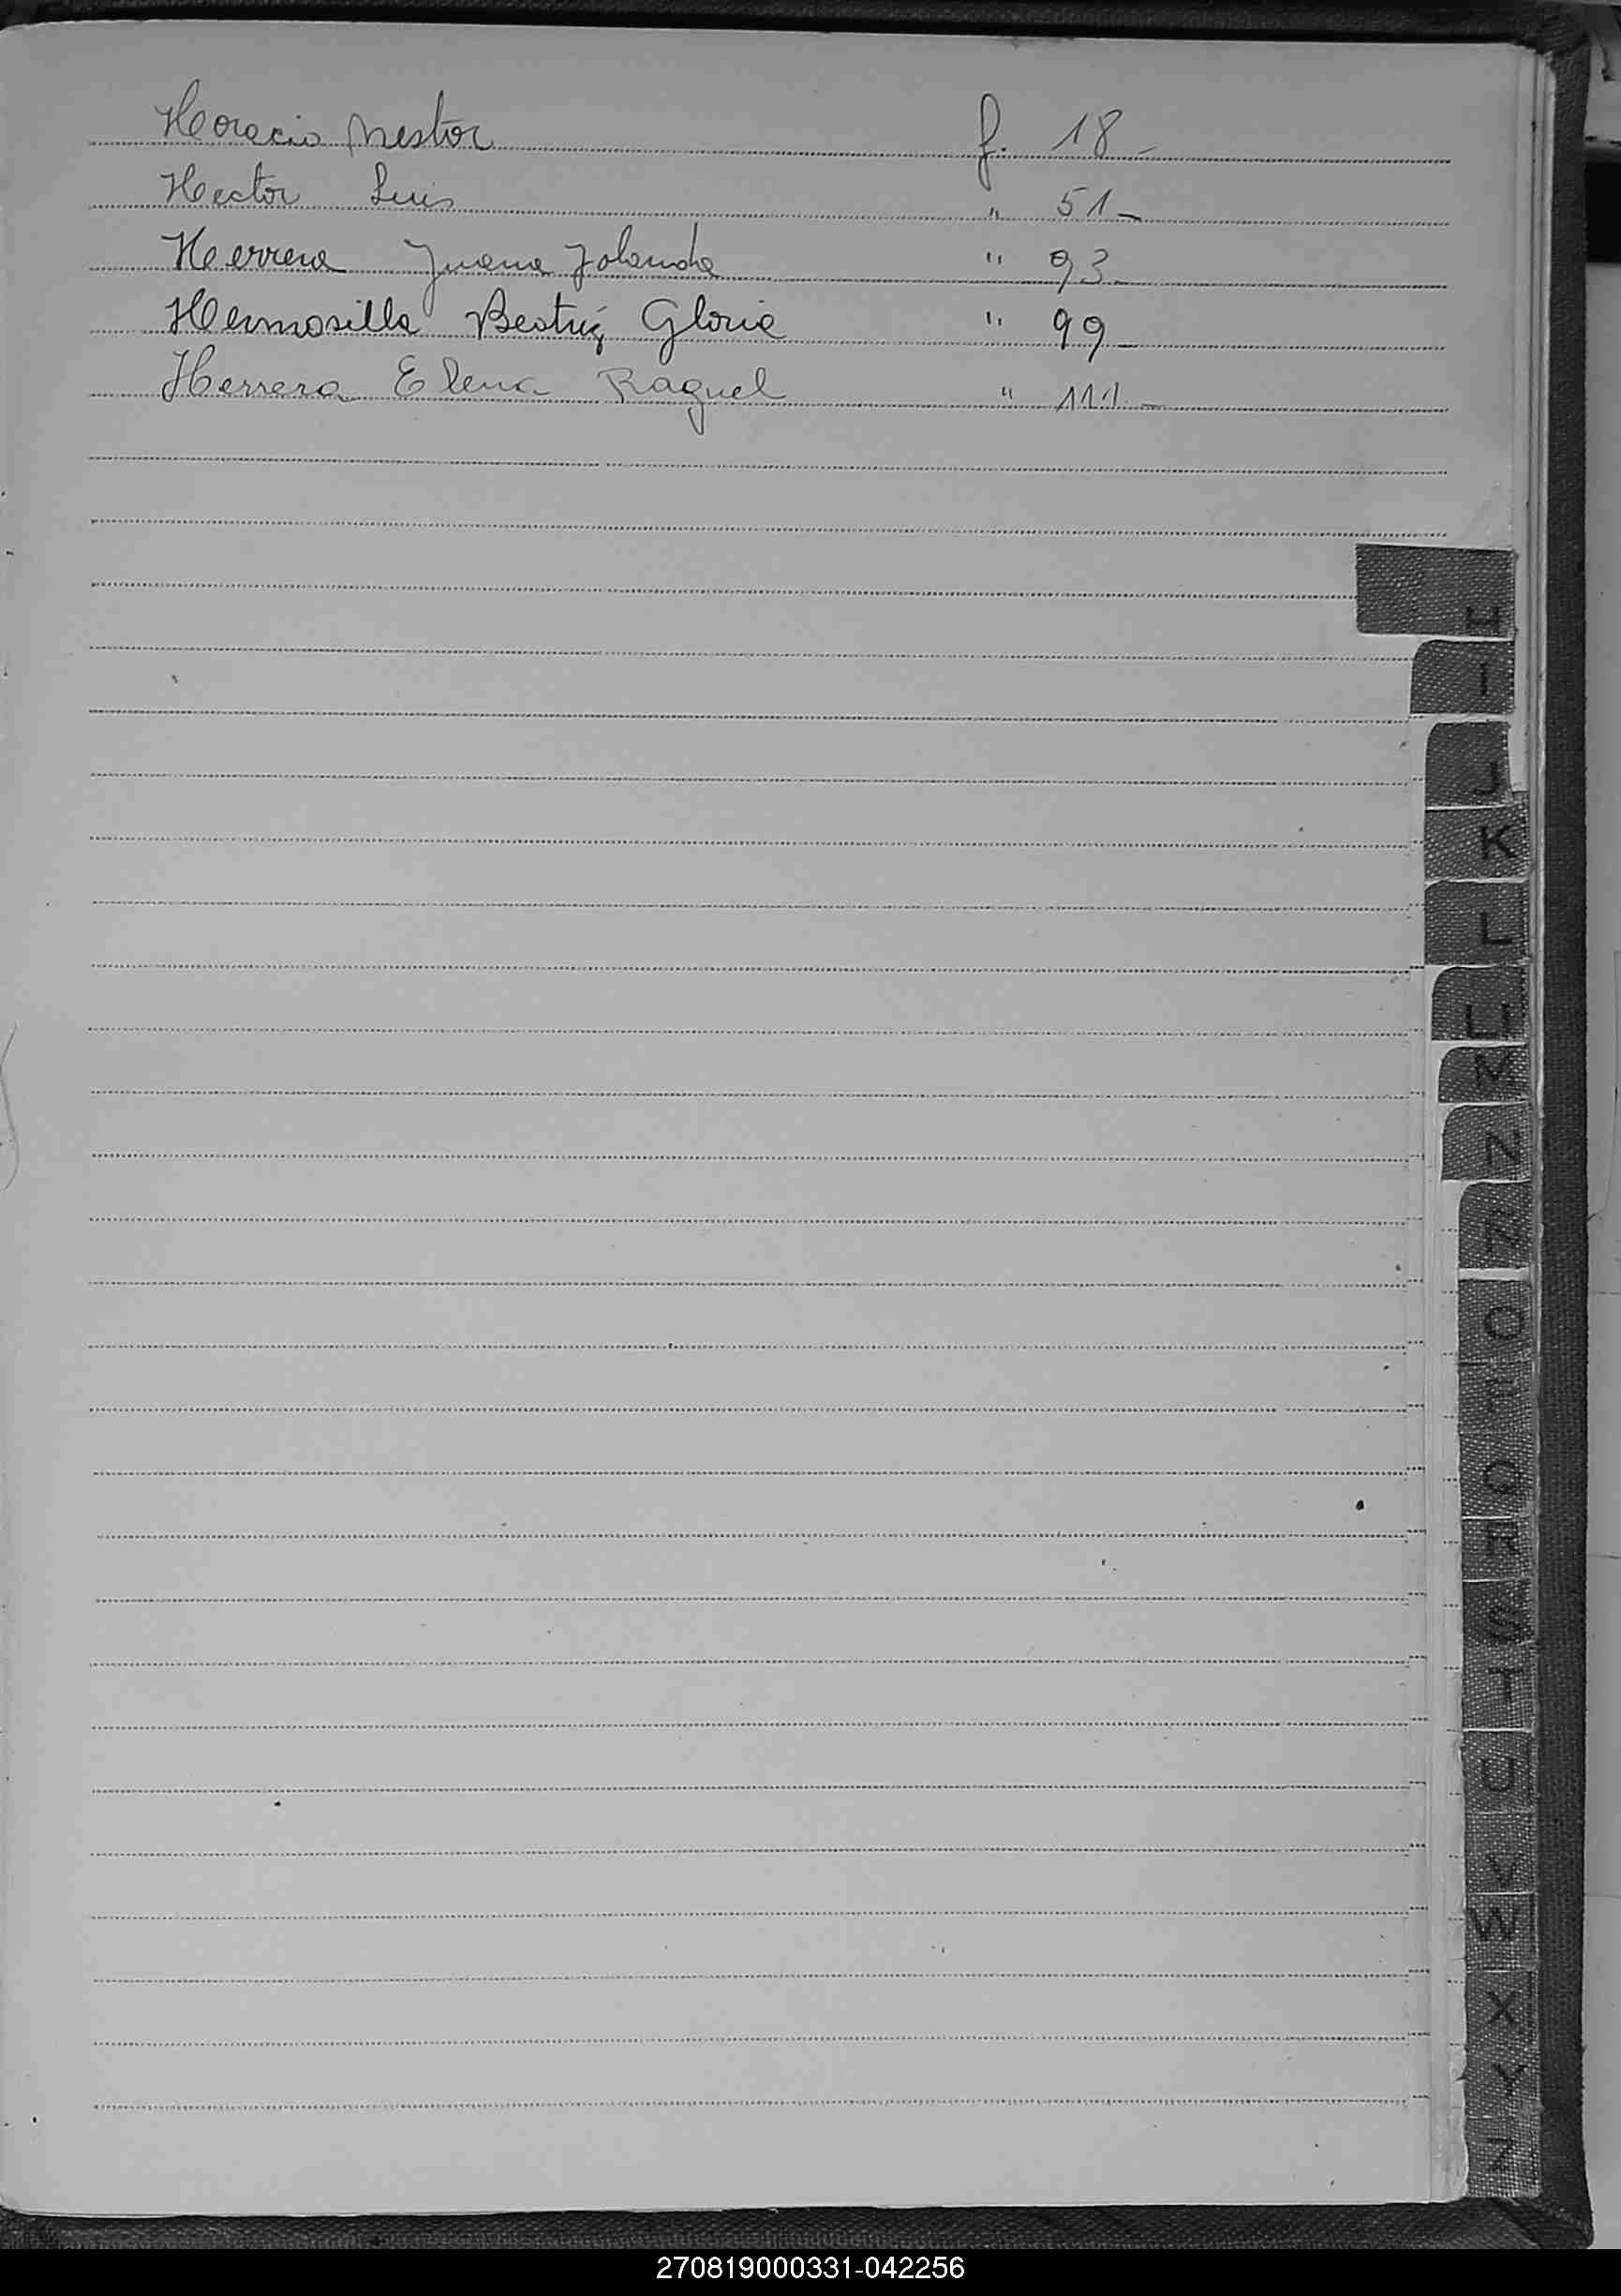 Horacio Nestor f. 18-
Hector Luis " 51-
Herrera Juana Jolanda " 93-
Hermosilla Beatriz Gloria " 99-
Herrera Elena Raquel " 111-
H
I
J
K
L
LL
M
N
Ñ
O
P
Q
R
S
T
U
V
W
X
Y
Z
270819000331-042256